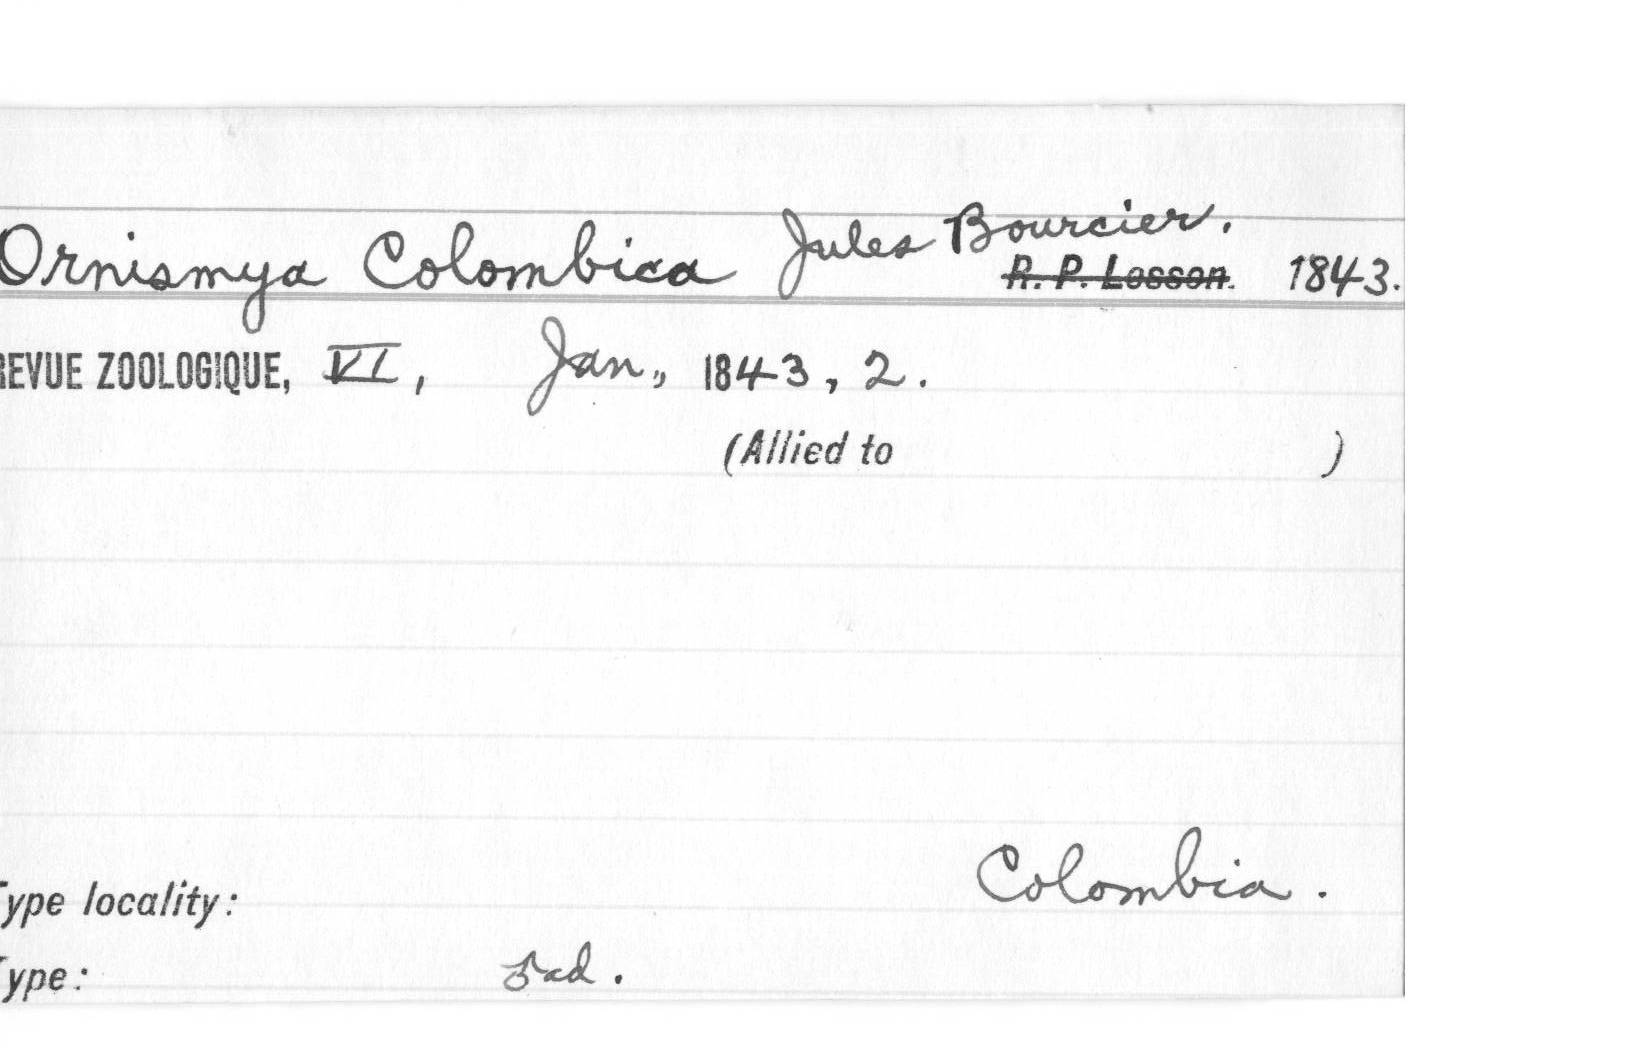 Ornismya Colombica Jules Bourcier.
R. P. Lesson. 1843.
REVUE ZOOLOGIQUE, VI, Jan., 1843, 2.
(Allied to )
Type locality: Colombia.
Type: ad.